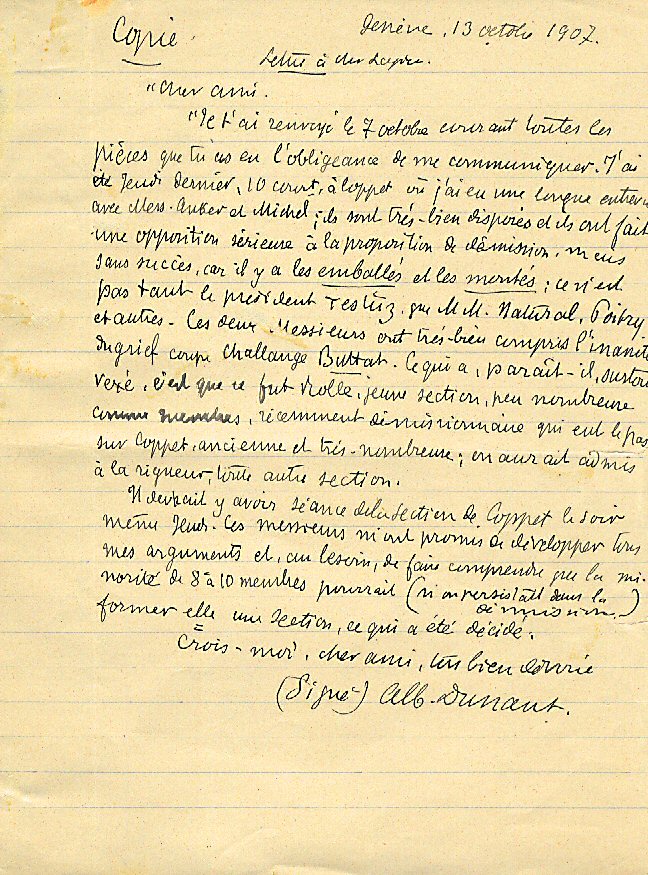 Copie
Genève, 13 octobre 1907.
Lettre à Ch.
"Cher ami.
"Je t'ai renvoyé le 7 octobre courant toutes les
pièces que tu as eu l'obligeance de me communiquer. J'ai
été Jeudi dernier, 10 court, à Coppet où j'ai eu une longue entrevue
avec Mess. Auber et Michel; ils sont très-bien disposés et ils ont fait
une opposition sérieuse à la proposition de démission, mais
sans succès, car il y a les emballés et les montés; ce n'est
pas tant le président Testuz que M.M. Natural, Poitry
et autres. Ces deux Messieurs ont très-bien compris l'inanité
du grief coupe Challange Buttat. Ce qui a, paraît-il, surtout
vexé, c'est que ce fut Rolle, jeune section, peu nombreuse
comme membres, récemment démissionnaire qui eut le pas
sur Coppet, ancienne et très-nombreuse; on aurait admis
à la rigueur, toute autre section.
Il devrait y avoir séance de la section de Coppet le soir
même Jeudi. Ces messieurs m'ont promis de développer tous
mes arguments et, au besoin, de faire comprendre que la mi-
norité de 8 à 10 membres pourrait (si on persistait dans la
démission)
former elle une section, ce qui a été décidé.
Crois-moi, cher ami, ton bien dévoué
(Signé) Alb. Dunant.